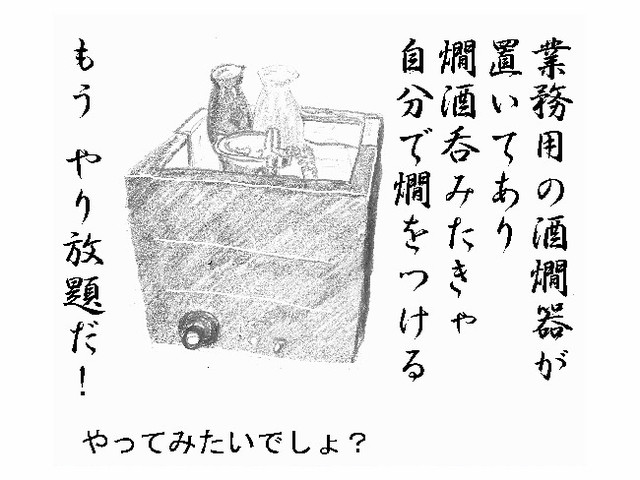 業務用の酒燗器が
置いてあり
燗酒呑みたきゃ
自分で燗をつける
もう やり放題だ！
やってみたいでしょ？